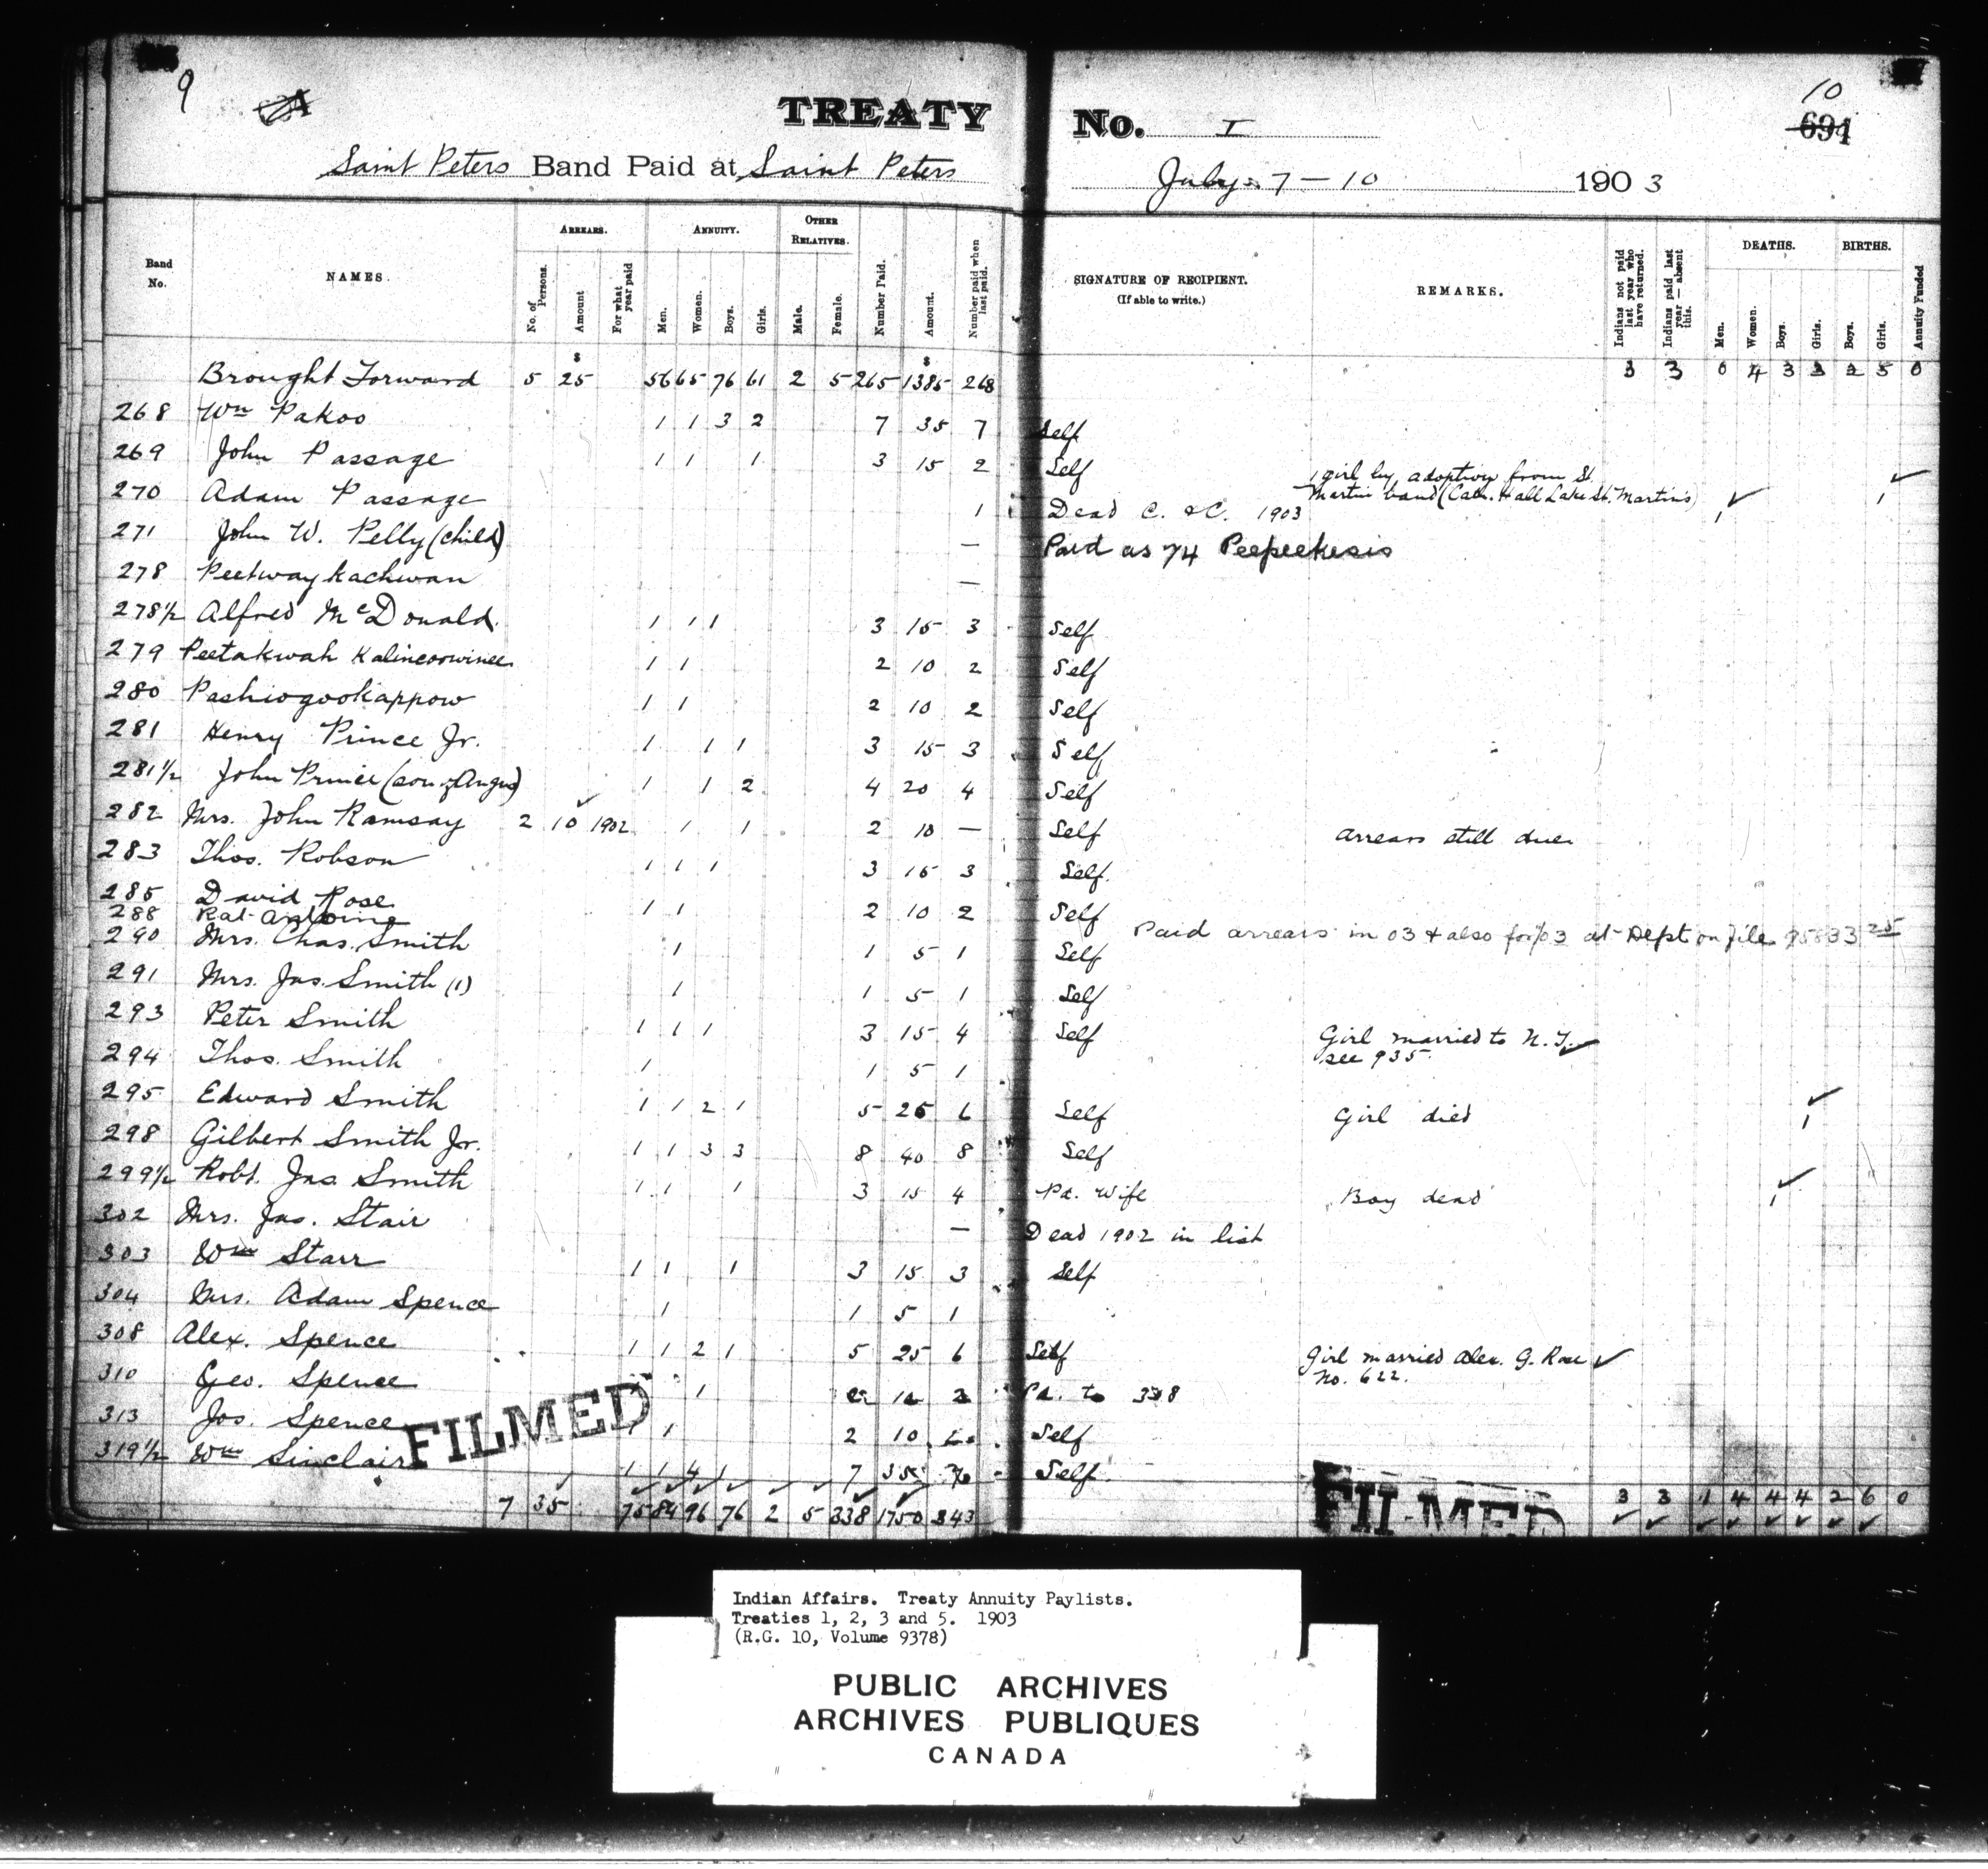 9
TREATY No. I
10
694
Saint Peters Band Paid at Saint Peters July 7 — 10 1903
Band No. NAMES. ARREARS. No. of Persons. Amount For what year paid ANNUITY. Men. Women. Boys. Girls. OTHER RELATIVES. Male. Female. Number Paid. Amount. Number paid when last paid. SIGNATURE OF RECIPIENT. (If able to write.) REMARKS. Indians not paid last year who have returned. Indians paid last year — absent this. DEATHS. Men. Women. Boys. Girls. BIRTHS. Boys. Girls. Annuity Funded
$ $
Brought Forward 5 25 56 65 76 61 2 5 265 1385 268 3 3 0 4 3 3 2 5 0
268 Wm Pakoo 1 1 3 2 7 35 7 Self
269 John Passage 1 1 1 3 15 2 Self 1 girl by adoption from St. Martin band (Cath. Hall Lake St. Martins) 1
270 Adam Passage 1 Dead C. &C. 1903 1
271 John W. Pelly (child) — Paid as 74 Peepeekesis
278 Peetwaykachwan —
278½ Alfred McDonald. 1 1 1 3 15 3 Self
279 Peetakwah Kalincoowinee 1 1 2 10 2 Self
280 Pashiogookappow 1 1 2 10 2 Self
281 Henry Prince Jr. 1 1 1 3 15 3 Self
281½ John Prince (son of Angus) 1 1 2 4 20 4 Self
282 Mrs. John Ramsay 2 10 1902 1 1 2 10 — Self Arrears still due
283 Thos. Robson 1 1 1 3 15 3 Self.
285 David Rose 1 1 2 10 2 Self
288 Rat Antoine Paid arrears in 03 & also for 03 at Dept on file 95833 25
290 Mrs. Chas. Smith 1 1 5 1 Self
291 Mrs. Jas. Smith (1) 1 1 5 1 Self
293 Peter Smith 1 1 1 3 15 4 Self Girl married to N. T. see 935.
294 Thos. Smith 1 1 5 1
295 Edward Smith 1 1 2 1 5 25 6 Self Girl died 1
298 Gilbert Smith Jr. 1 1 3 3 8 40 8 Self
299½ Robt. Jas. Smith 1 1 1 3 15 4 Pd. Wife Boy dead 1
302 Mrs. Jas. Stair — Dead 1902 in list
303 Wm Starr 1 1 1 3 15 3 Self
304 Mrs. Adam Spence 1 1 5 1
308 Alex. Spence 1 1 2 1 5 25 6 Self Girl married Alex. G. Rose No. 622.
310 Geo. Spence 1 Pd. to
313 Jos. Spence 1 2 10 Self
319½ Wm Sinclair 1 1 4 1 7 35 Self.
7 35 75 84 96 76 2 5 338 1750 343 3 3 1 4 4 4 2 6 0
FILMED
FILMED
Indian Affairs. Treaty Annuity Paylists.
Treaties 1, 2, 3 and 5. 1903
(R.G. 10, Volume 9378)
PUBLIC ARCHIVES
ARCHIVES PUBLIQUES
CANADA